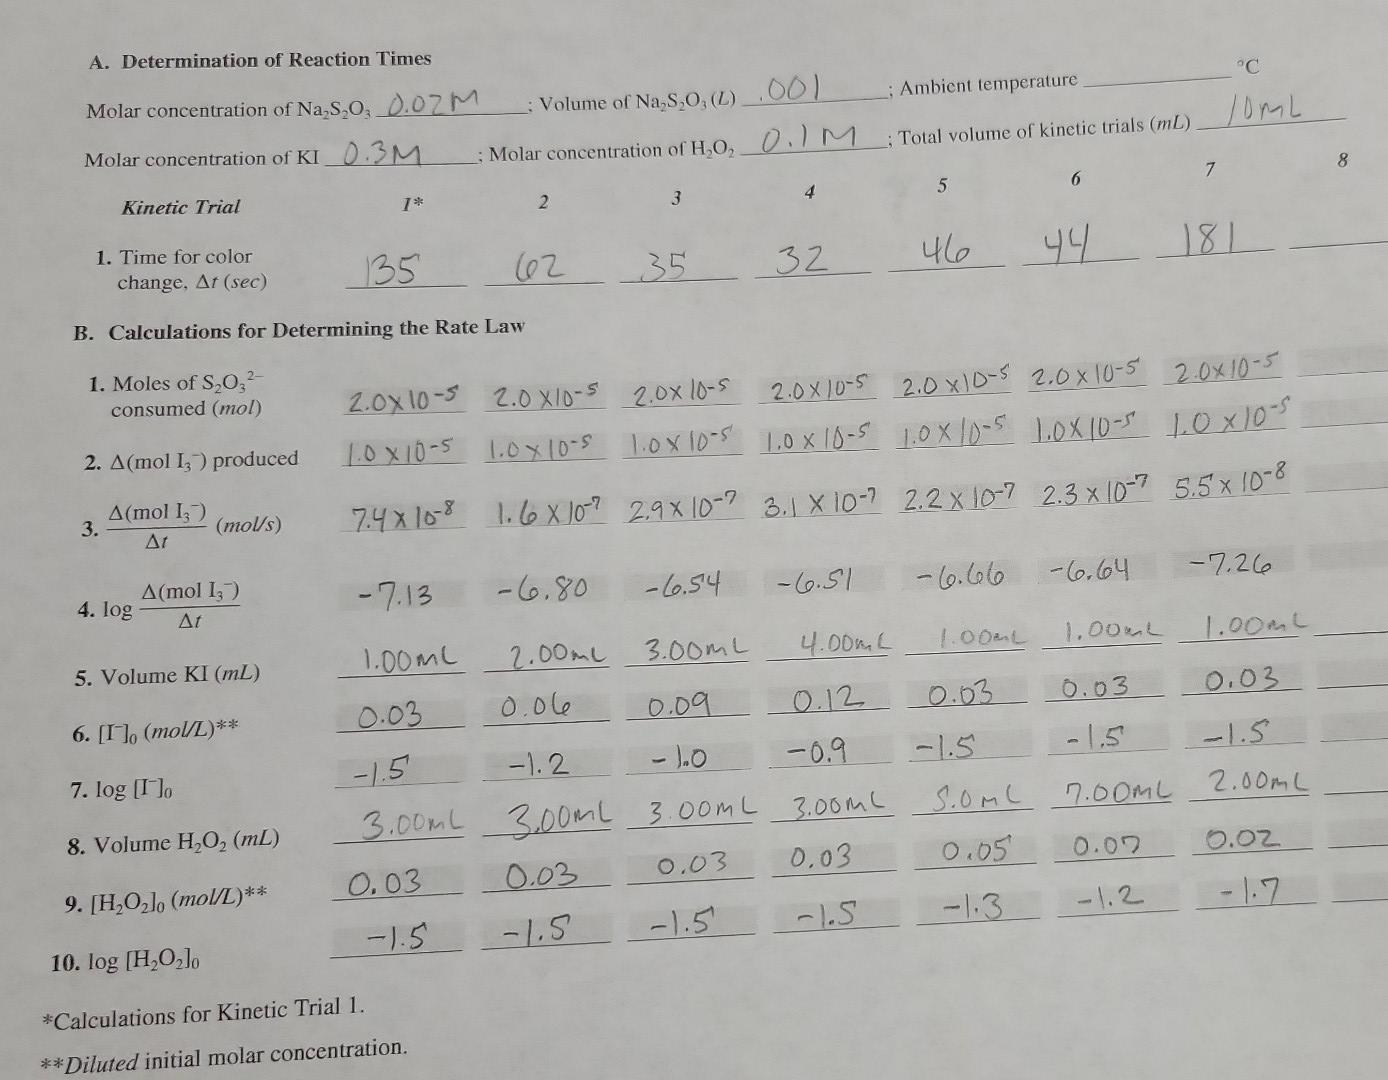 A. Determination of Reaction Times
Molar concentration of Na₂S₂O₃ 0.02M ; Volume of Na₂S₂O₃ (L) .001 ; Ambient temperature °C
Molar concentration of KI 0.3M ; Molar concentration of H₂O₂ 0.1M ; Total volume of kinetic trials (mL) 10mL
Kinetic Trial 1* 2 3 4 5 6 7 8
1. Time for color
change, Δt (sec) 135 62 35 32 46 44 181
B. Calculations for Determining the Rate Law
1. Moles of S₂O₃²⁻
consumed (mol) 2.0x10-5 2.0x10-5 2.0x10-5 2.0x10-5 2.0x10-5 2.0x10-5 2.0x10-5
2. Δ(mol I₃⁻) produced 1.0x10-5 1.0x10-5 1.0x10-5 1.0x10-5 1.0x10-5 1.0x10-5 1.0x10-5
3. Δ(mol I₃⁻)/Δt (mol/s) 7.4x10-8 1.6x10-7 2.9x10-7 3.1x10-7 2.2x10-7 2.3x10-7 5.5x10-8
4. log Δ(mol I₃⁻)/Δt -7.13 -6.80 -6.54 -6.51 -6.66 -6.64 -7.26
5. Volume KI (mL) 1.00mL 2.00mL 3.00mL 4.00mL 1.00mL 1.00mL 1.00mL
6. [I⁻]₀ (mol/L)** 0.03 0.06 0.09 0.12 0.03 0.03 0.03
7. log [I⁻]₀ -1.5 -1.2 -1.0 -0.9 -1.5 -1.5 -1.5
8. Volume H₂O₂ (mL) 3.00mL 3.00mL 3.00mL 3.00mL 5.0mL 7.00mL 2.00mL
9. [H₂O₂]₀ (mol/L)** 0.03 0.03 0.03 0.03 0.05 0.07 0.02
10. log [H₂O₂]₀ -1.5 -1.5 -1.5 -1.5 -1.3 -1.2 -1.7
*Calculations for Kinetic Trial 1.
**Diluted initial molar concentration.